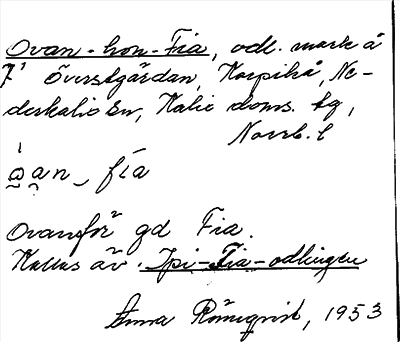 Ovan-hon-Fia, odl. mark å
7¹ Överstgården, Korpikå, Ne-
derkalix sn, Kalix doms. tg,
Norrb. l
a̰an_ fía
Ovanför gd Fia.
Kallas äv. Ipi-Fia-odlingen
Anna Rönnqvist, 1953